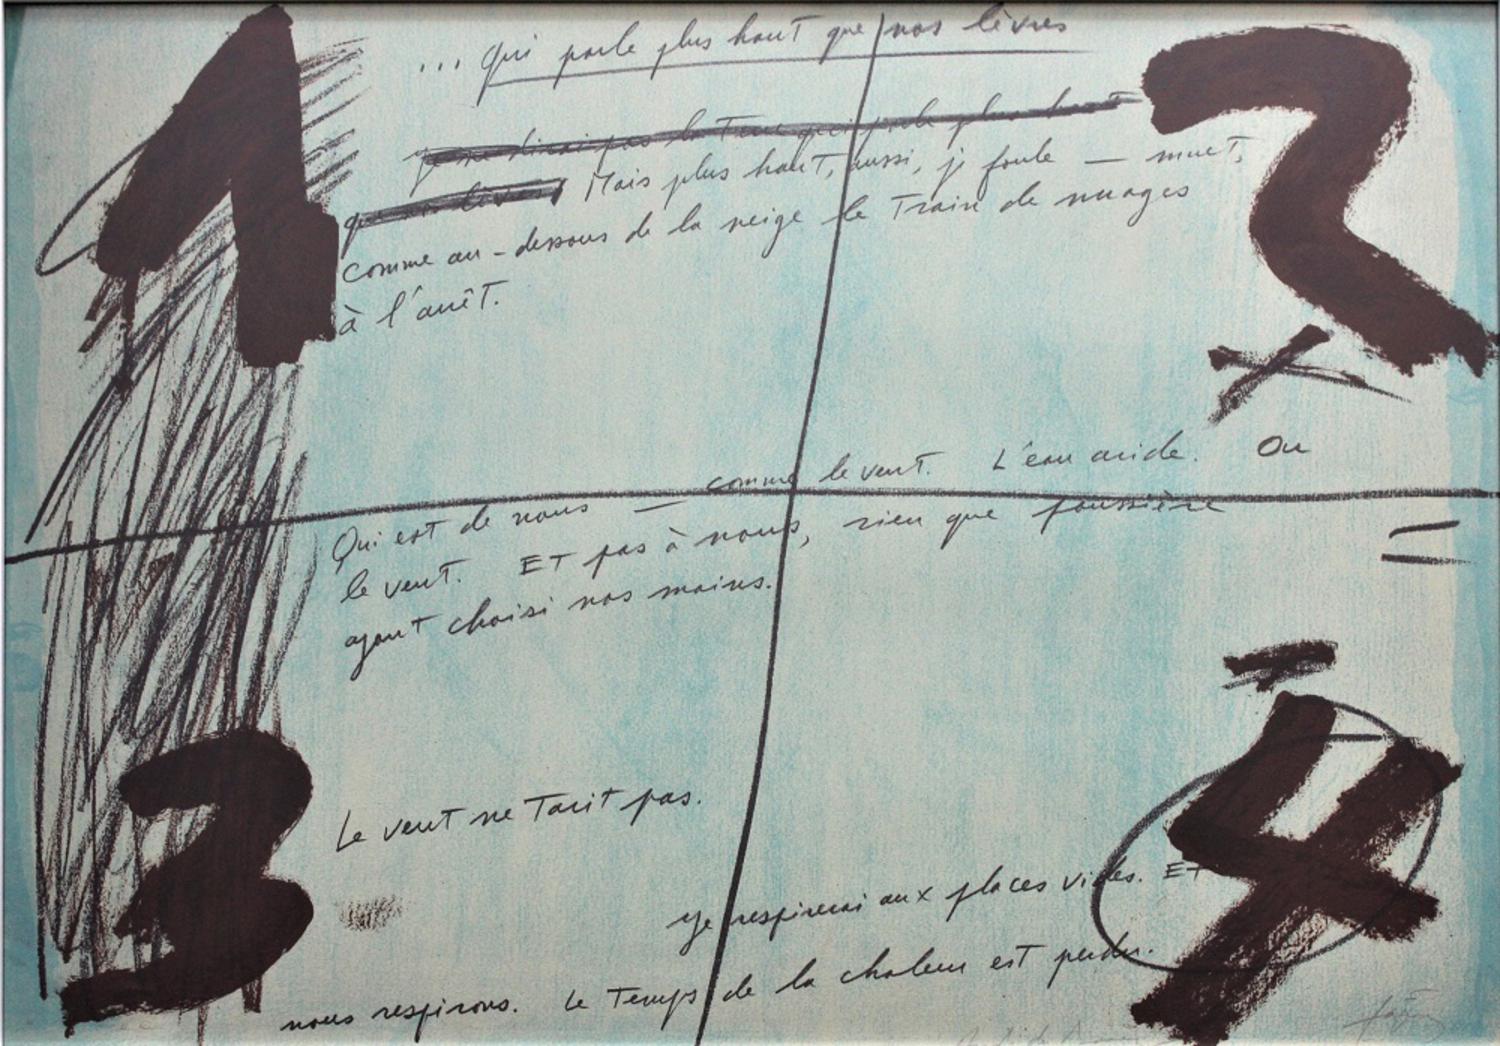 1
2
... qui parle plus haut que nos lèvres
je ne dirai pas la qui parle plus haut
que nos lèvres Mais plus haut, aussi, je foule — muet,
comme au-dessous de la neige le Train de nuages
à l'arrêt.
Qui est de nous — comme le vent. L'eau aride. Ou
le vent. ET pas à nous, rien que poussière
ayant choisi nos mains.
3
4
Le vent ne Tarit pas.
Je respirerai aux places vides. ET
nous respirons. Le Temps de la chaleur est perdu.